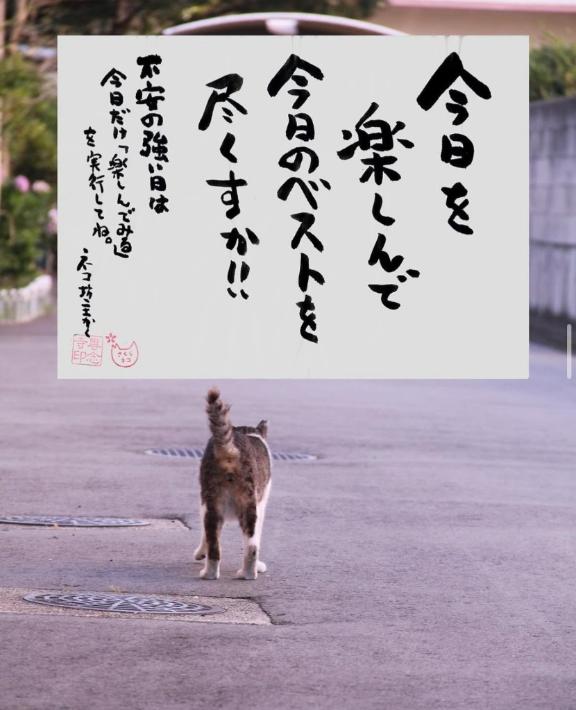 今日を
楽しんで
今日のベストを
尽くすか!!
不安の強い日は
今日だけ「楽しんでみる道」
を実行してね。
ネコ坊主より
専念
寺印
さくら
ネコ